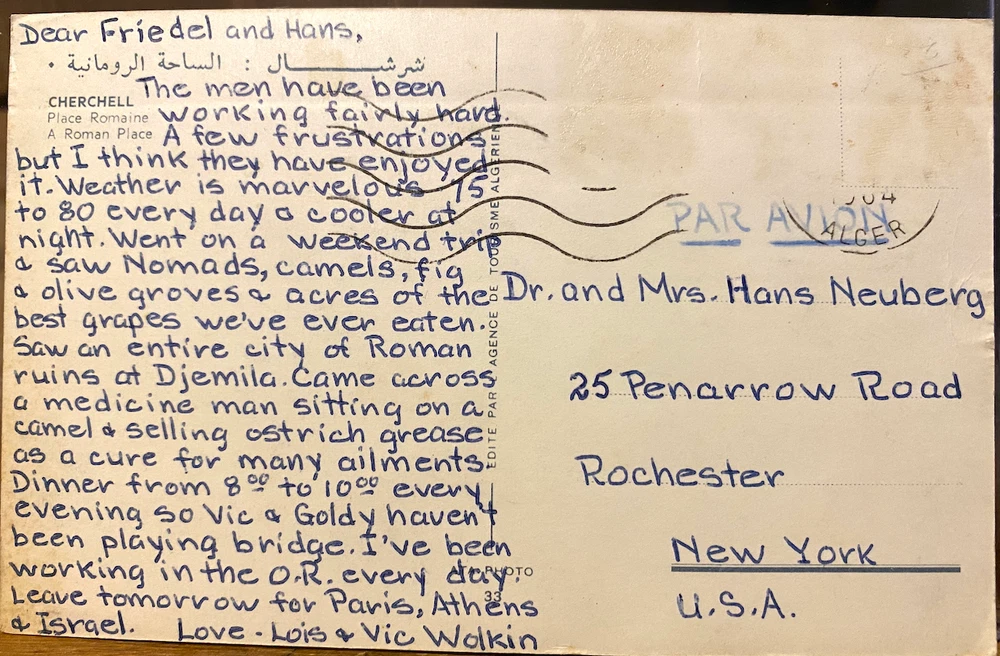 Dear Friedel and Hans,
شرشـــــال : الساحة الرومانية •
CHERCHELL
Place Romaine
A Roman Place
The men have been
working fairly hard.
A few frustrations
but I think they have enjoyed
it. Weather is marvelous 75
to 80 every day & cooler at
night. Went on a weekend trip
& saw Nomads, camels, fig
& olive groves & acres of the
best grapes we've ever eaten.
Saw an entire city of Roman
ruins at Djemila. Came across
a medicine man sitting on a
camel & selling ostrich grease
as a cure for many ailments.
Dinner from 8⁰⁰ to 10⁰⁰ every
evening so Vic & Goldy haven't
been playing bridge. I've been
working in the O.R. every day.
Leave tomorrow for Paris, Athens
& Israel. Love - Lois & Vic Wolkin
EDITE PAR AGENCE DE TOURISME ALGERIEN
PHOTO
33
PAR AVION
ALGER
Dr. and Mrs. Hans Neuberg
25 Penarrow Road
Rochester
New York
U.S.A.